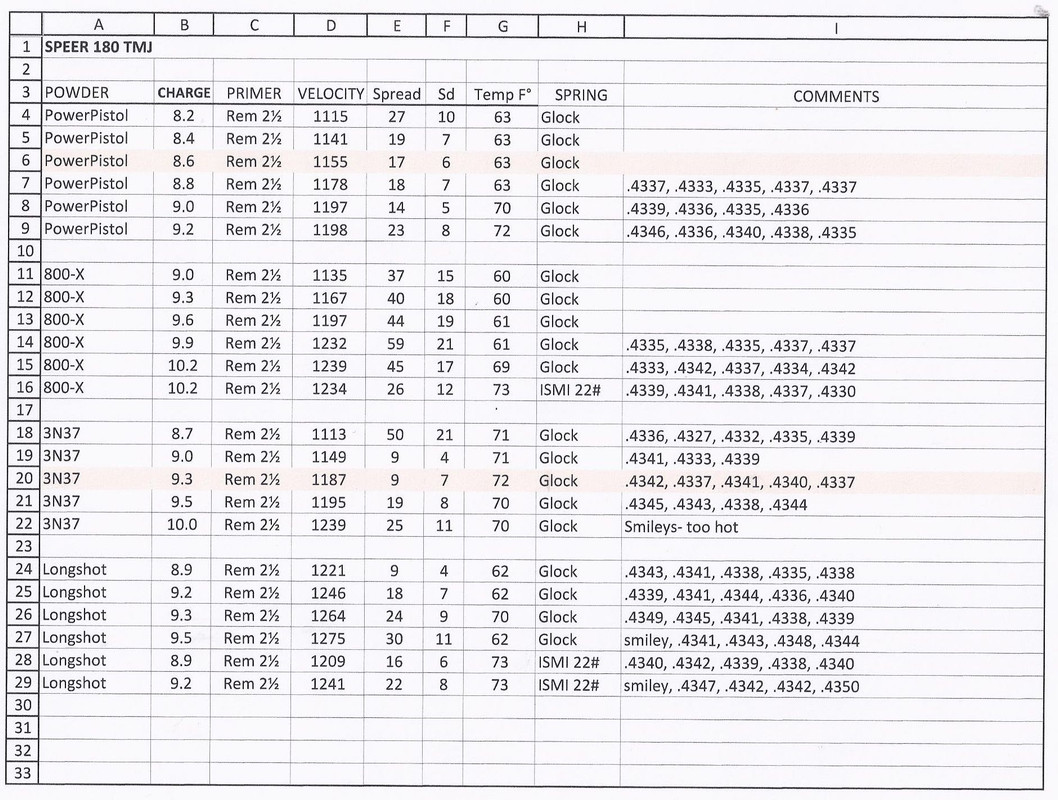 A B C D E F G H I
1 SPEER 180 TMJ
2
3 POWDER CHARGE PRIMER VELOCITY Spread Sd Temp F° SPRING COMMENTS
4 PowerPistol 8.2 Rem 2½ 1115 27 10 63 Glock
5 PowerPistol 8.4 Rem 2½ 1141 19 7 63 Glock
6 PowerPistol 8.6 Rem 2½ 1155 17 6 63 Glock
7 PowerPistol 8.8 Rem 2½ 1178 18 7 63 Glock .4337, .4333, .4335, .4337, .4337
8 PowerPistol 9.0 Rem 2½ 1197 14 5 70 Glock .4339, .4336, .4335, .4336
9 PowerPistol 9.2 Rem 2½ 1198 23 8 72 Glock .4346, .4336, .4340, .4338, .4335
10
11 800-X 9.0 Rem 2½ 1135 37 15 60 Glock
12 800-X 9.3 Rem 2½ 1167 40 18 60 Glock
13 800-X 9.6 Rem 2½ 1197 44 19 61 Glock
14 800-X 9.9 Rem 2½ 1232 59 21 61 Glock .4335, .4338, .4335, .4337, .4337
15 800-X 10.2 Rem 2½ 1239 45 17 69 Glock .4333, .4342, .4337, .4334, .4342
16 800-X 10.2 Rem 2½ 1234 26 12 73 ISMI 22# .4339, .4341, .4338, .4337, .4330
17
18 3N37 8.7 Rem 2½ 1113 50 21 71 Glock .4336, .4327, .4332, .4335, .4339
19 3N37 9.0 Rem 2½ 1149 9 4 71 Glock .4341, .4333, .4339
20 3N37 9.3 Rem 2½ 1187 9 7 72 Glock .4342, .4337, .4341, .4340, .4337
21 3N37 9.5 Rem 2½ 1195 19 8 70 Glock .4345, .4343, .4338, .4344
22 3N37 10.0 Rem 2½ 1239 25 11 70 Glock Smileys- too hot
23
24 Longshot 8.9 Rem 2½ 1221 9 4 62 Glock .4343, .4341, .4338, .4335, .4338
25 Longshot 9.2 Rem 2½ 1246 18 7 62 Glock .4339, .4341, .4344, .4336, .4340
26 Longshot 9.3 Rem 2½ 1264 24 9 70 Glock .4349, .4345, .4341, .4338, .4339
27 Longshot 9.5 Rem 2½ 1275 30 11 62 Glock smiley, .4341, .4343, .4348, .4344
28 Longshot 8.9 Rem 2½ 1209 16 6 73 ISMI 22# .4340, .4342, .4339, .4338, .4340
29 Longshot 9.2 Rem 2½ 1241 22 8 73 ISMI 22# smiley, .4347, .4342, .4342, .4350
30
31
32
33